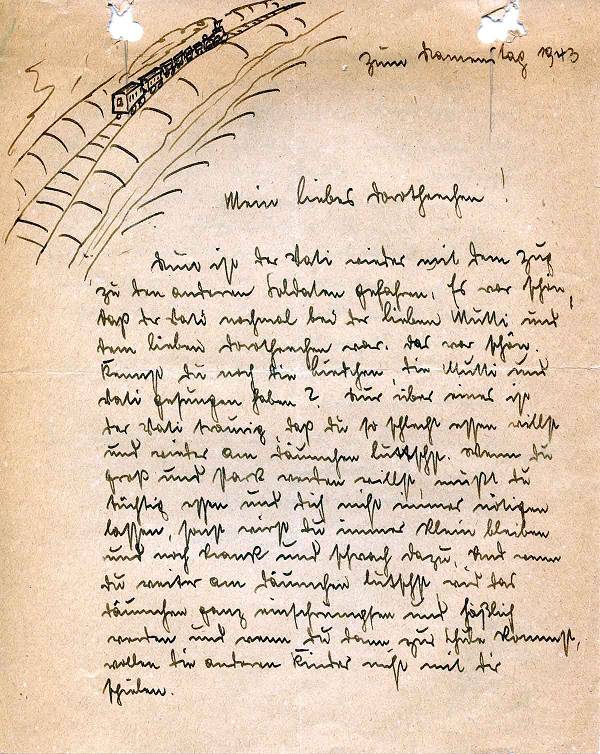 zum Namenstag 1943
Mein liebes Dorotheechen!
Nun ist der Vati wieder mit dem Zug
zu den anderen Soldaten gefahren. Es war schön,
daß der Vati nochmal bei der lieben Mutti und
dem lieben Dorotheechen war. Das war schön.
Kennst Du noch die Liedchen, die Mutti und
Vati gesungen haben? Nur über eines ist
der Vati traurig, daß Du so schlecht essen willst
und wieder am Däumchen luttschst. Wenn Du
groß und stark werden willst, mußt Du
tüchtig essen und Dich nicht immer nötigen
lassen, sonst wirst Du immer klein bleiben
und noch krank und schwach dazu. Und wenn
Du weiter am Däumchen lutschst, wird das
Däumchen ganz einschrumpfen und häßlich
werden und wenn Du dann zur Schule kommst,
wollen die anderen Kinder nicht mit Dir
spielen.